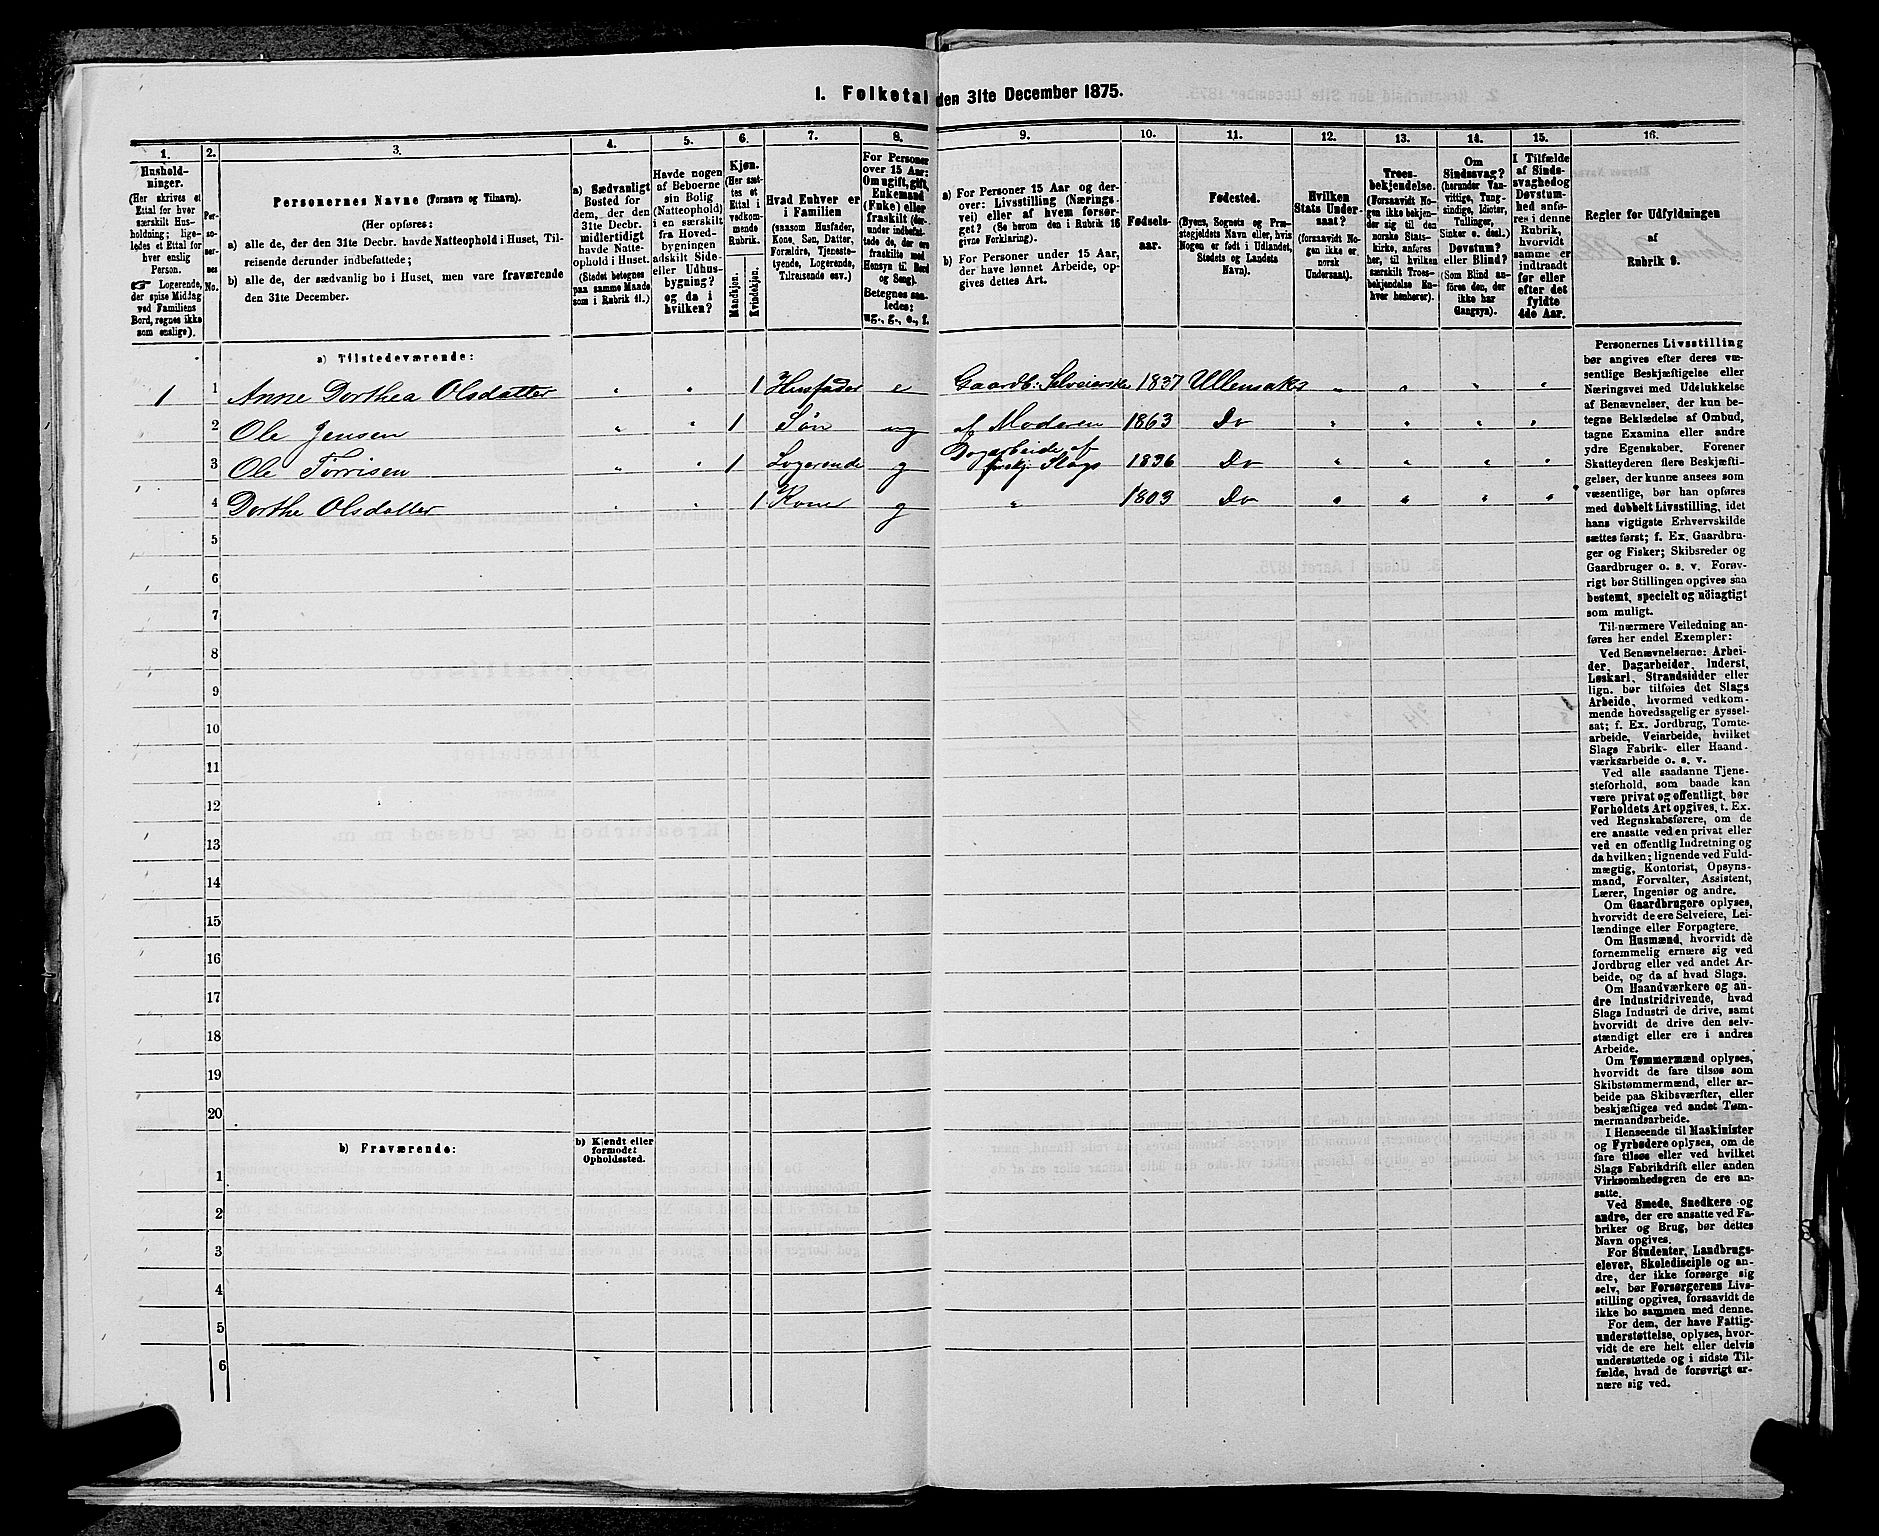 1. Folketal den 31te December 1875.
1. 2. 3. 4. 5. 6. 7. 8. 9. 10. 11. 12. 13. 14. 15. 16.
Hushold-
ninger.
(Her skrives et
Ettal for hver
særskilt Hus-
holdning; lige-
ledes et Ettal for
hver enslig
Person.
☞ Logerende,
der spise Middag
ved Familiens
Bord, regnes ikke
som enslige).
Per-
so-
ner-
nes
No.
Personernes Navne (Fornavn og Tilnavn).
(Her opføres:
a) alle de, der den 31te Decbr. havde Natteophold i Huset, Til-
reisende derunder indbefattede;
b) alle de, der sædvanlig bo i Huset, men vare fraværende
den 31te December.
a) Sædvanligt
Bosted for
dem, der den
31te Decbr.
midlertidigt
havde Natte-
ophold i Huset.
(Stedet betegnes
paa samme Maade
som i Rubrik 11.)
Havde nogen
af Beboerne
sin Bolig
(Natteophold)
i en særskilt
fra Hoved-
bygningen
adskilt Side-
eller Udhus-
bygning?
og da i
hvilken?
Kjøn.
(Her sæt-
tes et
Ettal i
vedkom-
mende
Rubrik.
Mandkjøn.
Kvindekjøn.
Hvad Enhver er
i Familien
(saasom Husfader,
Kone, Søn, Datter,
Forældre, Tjeneste-
tyende, Logerende,
Tilreisende osv.)
For Personer
over 15 Aar:
Om ugift, gift,
Enkemand
(Enke) eller
fraskilt (der-
under indbefat-
tede de, der ere
fraskilte med
Hensyn til Bord
og Seng).
Betegnes saa-
ledes:
ug., g., e., f.
a) For Personer 15 Aar og der-
over: Livsstilling (Nærings-
vei) eller af hvem forsør-
get? (Se herom den i Rubrik 16
givne Forklaring).
b) For Personer under 15 Aar,
der have lønnet Arbeide, op-
gives dettes Art.
Fødsels-
aar.
Fødested.
(Byens, Sognets og Præ-
stegjeldets Navn eller, hvis
Nogen er født i Udlandet,
Stedets og Landets
Navn).
Hvilken
Stats Under-
saat?
(forsaavidt No-
gen ikke er
norsk
Undersaat).
Troes-
bekjendelse.
(Forsaavidt No-
gen ikke bekjen-
der sig til den
norske Stats-
kirke, anføres
her, til hvilken
særskilt Troes-
bekjendelse En-
hver henhører).
Om
Sindssvag?
(herunder Van-
vittige, Tung-
sindige, Idioter,
Tullinger,
Sinker o. desl.)
Døvstum?
eller Blind?
(Som Blind an-
føres den, der
ikke har
Gangsyn).
I Tilfælde
af Sinds-
svaghed og
Døvstum-
hed anfø-
res i denne
Rubrik,
hvorvidt
samme er
indtraadt
før eller
efter det
fyldte
4de Aar.
Regler for Udfyldningen
af
Rubrik 9.
a) Tilstedeværende:
1 1 Anne Dorthea Olsdatter " " 1 Husfader e Gaardb. Selveierske 1837 Ullensaker " " " "
2 Ole Jensen " " 1 Søn ug af Moderen 1863 Do " " " "
3 Ole Torrisen " " 1 Logerende g Dagarbeide af forskj. Slags 1836 Do " " " "
4 Dorthe Olsdatter " " 1 Kone g " 1803 Do " " " "
5
6
7
8
9
10
11
12
13
14
15
16
17
18
19
20
b) Fraværende:
b) Kjendt eller
formodet
Opholdssted.
1
2
3
4
5
6
Personernes Livsstilling
bør angives efter deres væ-
sentlige Beskjæftigelse eller
Næringsvei med Udelukkelse
af Benævnelser, der kun be-
tegne Beklædelse af Ombud,
tagne Examina eller andre
ydre Egenskaber. Forener
Skatteyderen flere Beskjæfti-
gelser, der kunne ansees som
væsentlige, bør han opføres
med dobbelt Livsstilling, idet
hans vigtigste Erhvervskilde
sættes først; f. Ex. Gaardbru-
ger og Fisker; Skibsreder og
Gaardbruger o. s. v. Forøv-
rigt bør Stillingen opgives saa
bestemt, specielt og nöiagtigt
som muligt.
Til nærmere Veiledning an-
føres her endel Exempler:
Ved Benævnelserne: Arbei-
der, Dagarbeider, Inderst,
Løskarl, Strandsidder eller
lign. bør tilføies det Slags
Arbeide, hvormed vedkom-
mende hovedsagelig er syssel-
sat; f. Ex. Jordbrug, Tomte-
arbeide, Veiarbeide, hvilket
Slags Fabrik- eller Haand-
værksarbeide o. s. v.
Ved alle saadanne Tjene-
steforhold, som baade kan
være privat og offentligt, bør
Forholdets Art opgives, t. Ex.
ved Regnskabsførere, om de
ere ansatte ved en privat eller
ved en offentlig Indretning og
da hvilken; lignende ved Fuld-
mægtig, Kontorist, Opsyns-
mand, Forvalter, Assistent,
Lærer, Ingeniør og andre.
Om Gaardbrugere oplyses,
hvorvidt de ere Selveiere, Lei-
lændinge eller Forpagtere.
Om Husmænd, hvorvidt de
fornemmelig ernære sig ved
Jordbrug eller ved andet Ar-
beide, og da af hvad Slags.
Om Haandværkere og an-
dre Industridrivende, hvad
Slags Industri de drive, samt
hvorvidt de drive den selv-
stændigt eller ere i andres
Arbeide.
Om Tømmermænd oplyses,
hvorvidt de fare tilsøs som
Skibstømmermænd, eller ar-
beide paa Skibsværfter, eller
beskjæftiges ved andet Tøm-
mermandsarbeide.
I Henseende til Maskinister
og Fyrbødere oplyses, om de
fare tilsøs eller ved hvilket
Slags Fabrikdrift eller anden
Virksomhedsgren de ere an-
satte.
Ved Smede, Snedkere og
andre, der ere ansatte ved Fa-
briker og Brug, bør dettes
Navn opgives.
For Studenter, Landbrugs-
elever, Skoledisciple og an-
dre, der ikke forsørge sig
selv, bør Forsørgerens Livs-
stilling opgives, forsaavidt de
ikke bo sammen med denne.
For dem, der have Fattig-
understøttelse, oplyses, hvor-
vidt de ere helt eller delvis
understøttede og i sidste Til-
fælde, hvad de forøvrigt er-
nære sig ved.